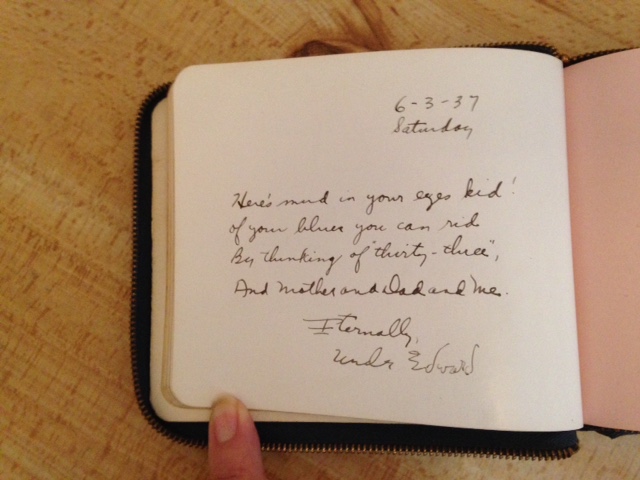 6-3-37
Saturday
Here's mud in your eyes kid!
of your blues you can rid
By thinking of "thirty-three",
And Mother and Dad and Me.
Eternally,
Uncle Edward